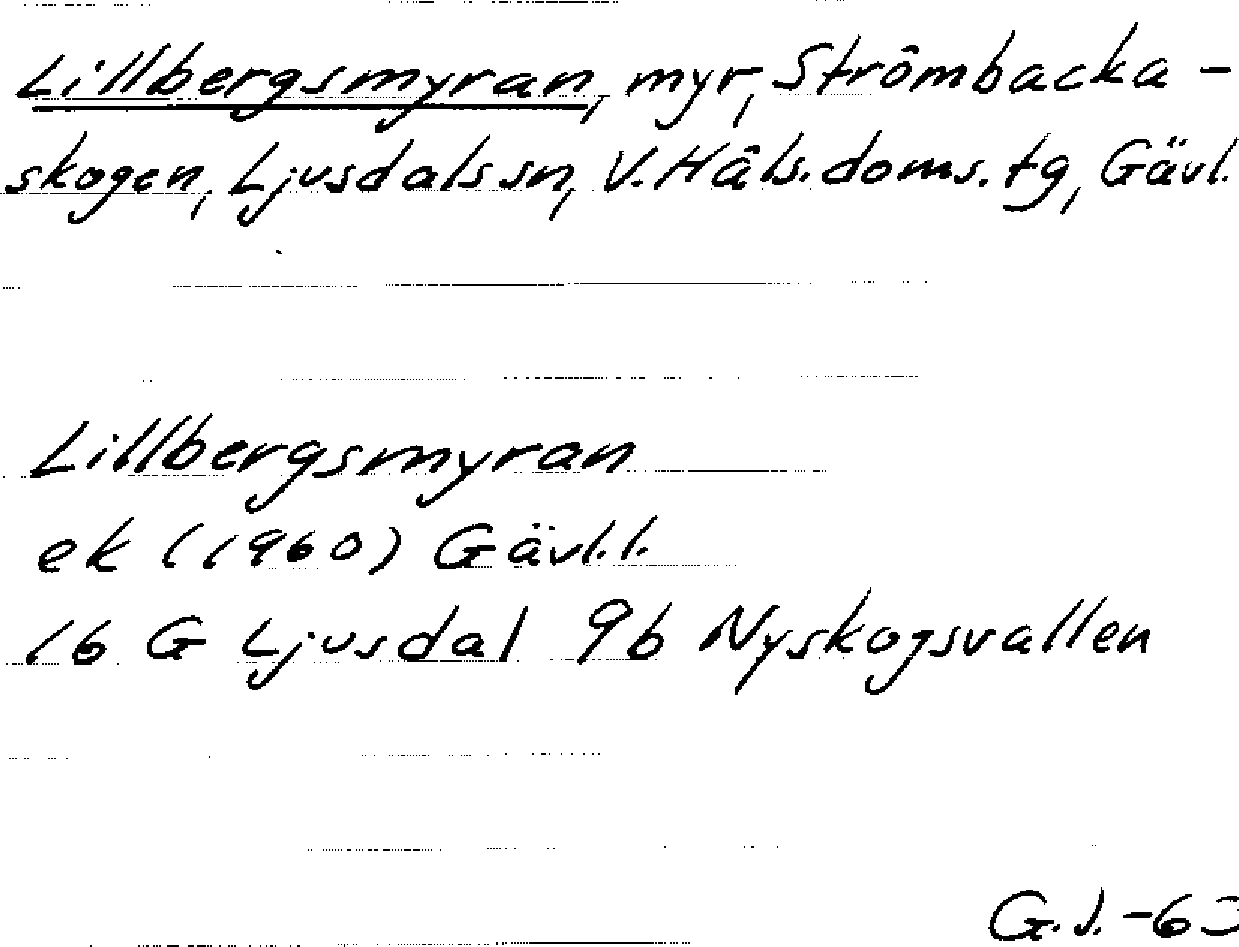 Lillbergsmyran, myr, Strömbacka-
skogen, Ljusdals sn, V. Häls. doms. tg, Gävl.
Lillbergsmyran
ek (1960) Gävl.l.
16 G Ljusdal 9b Nyskogsvallen
G.J. -63